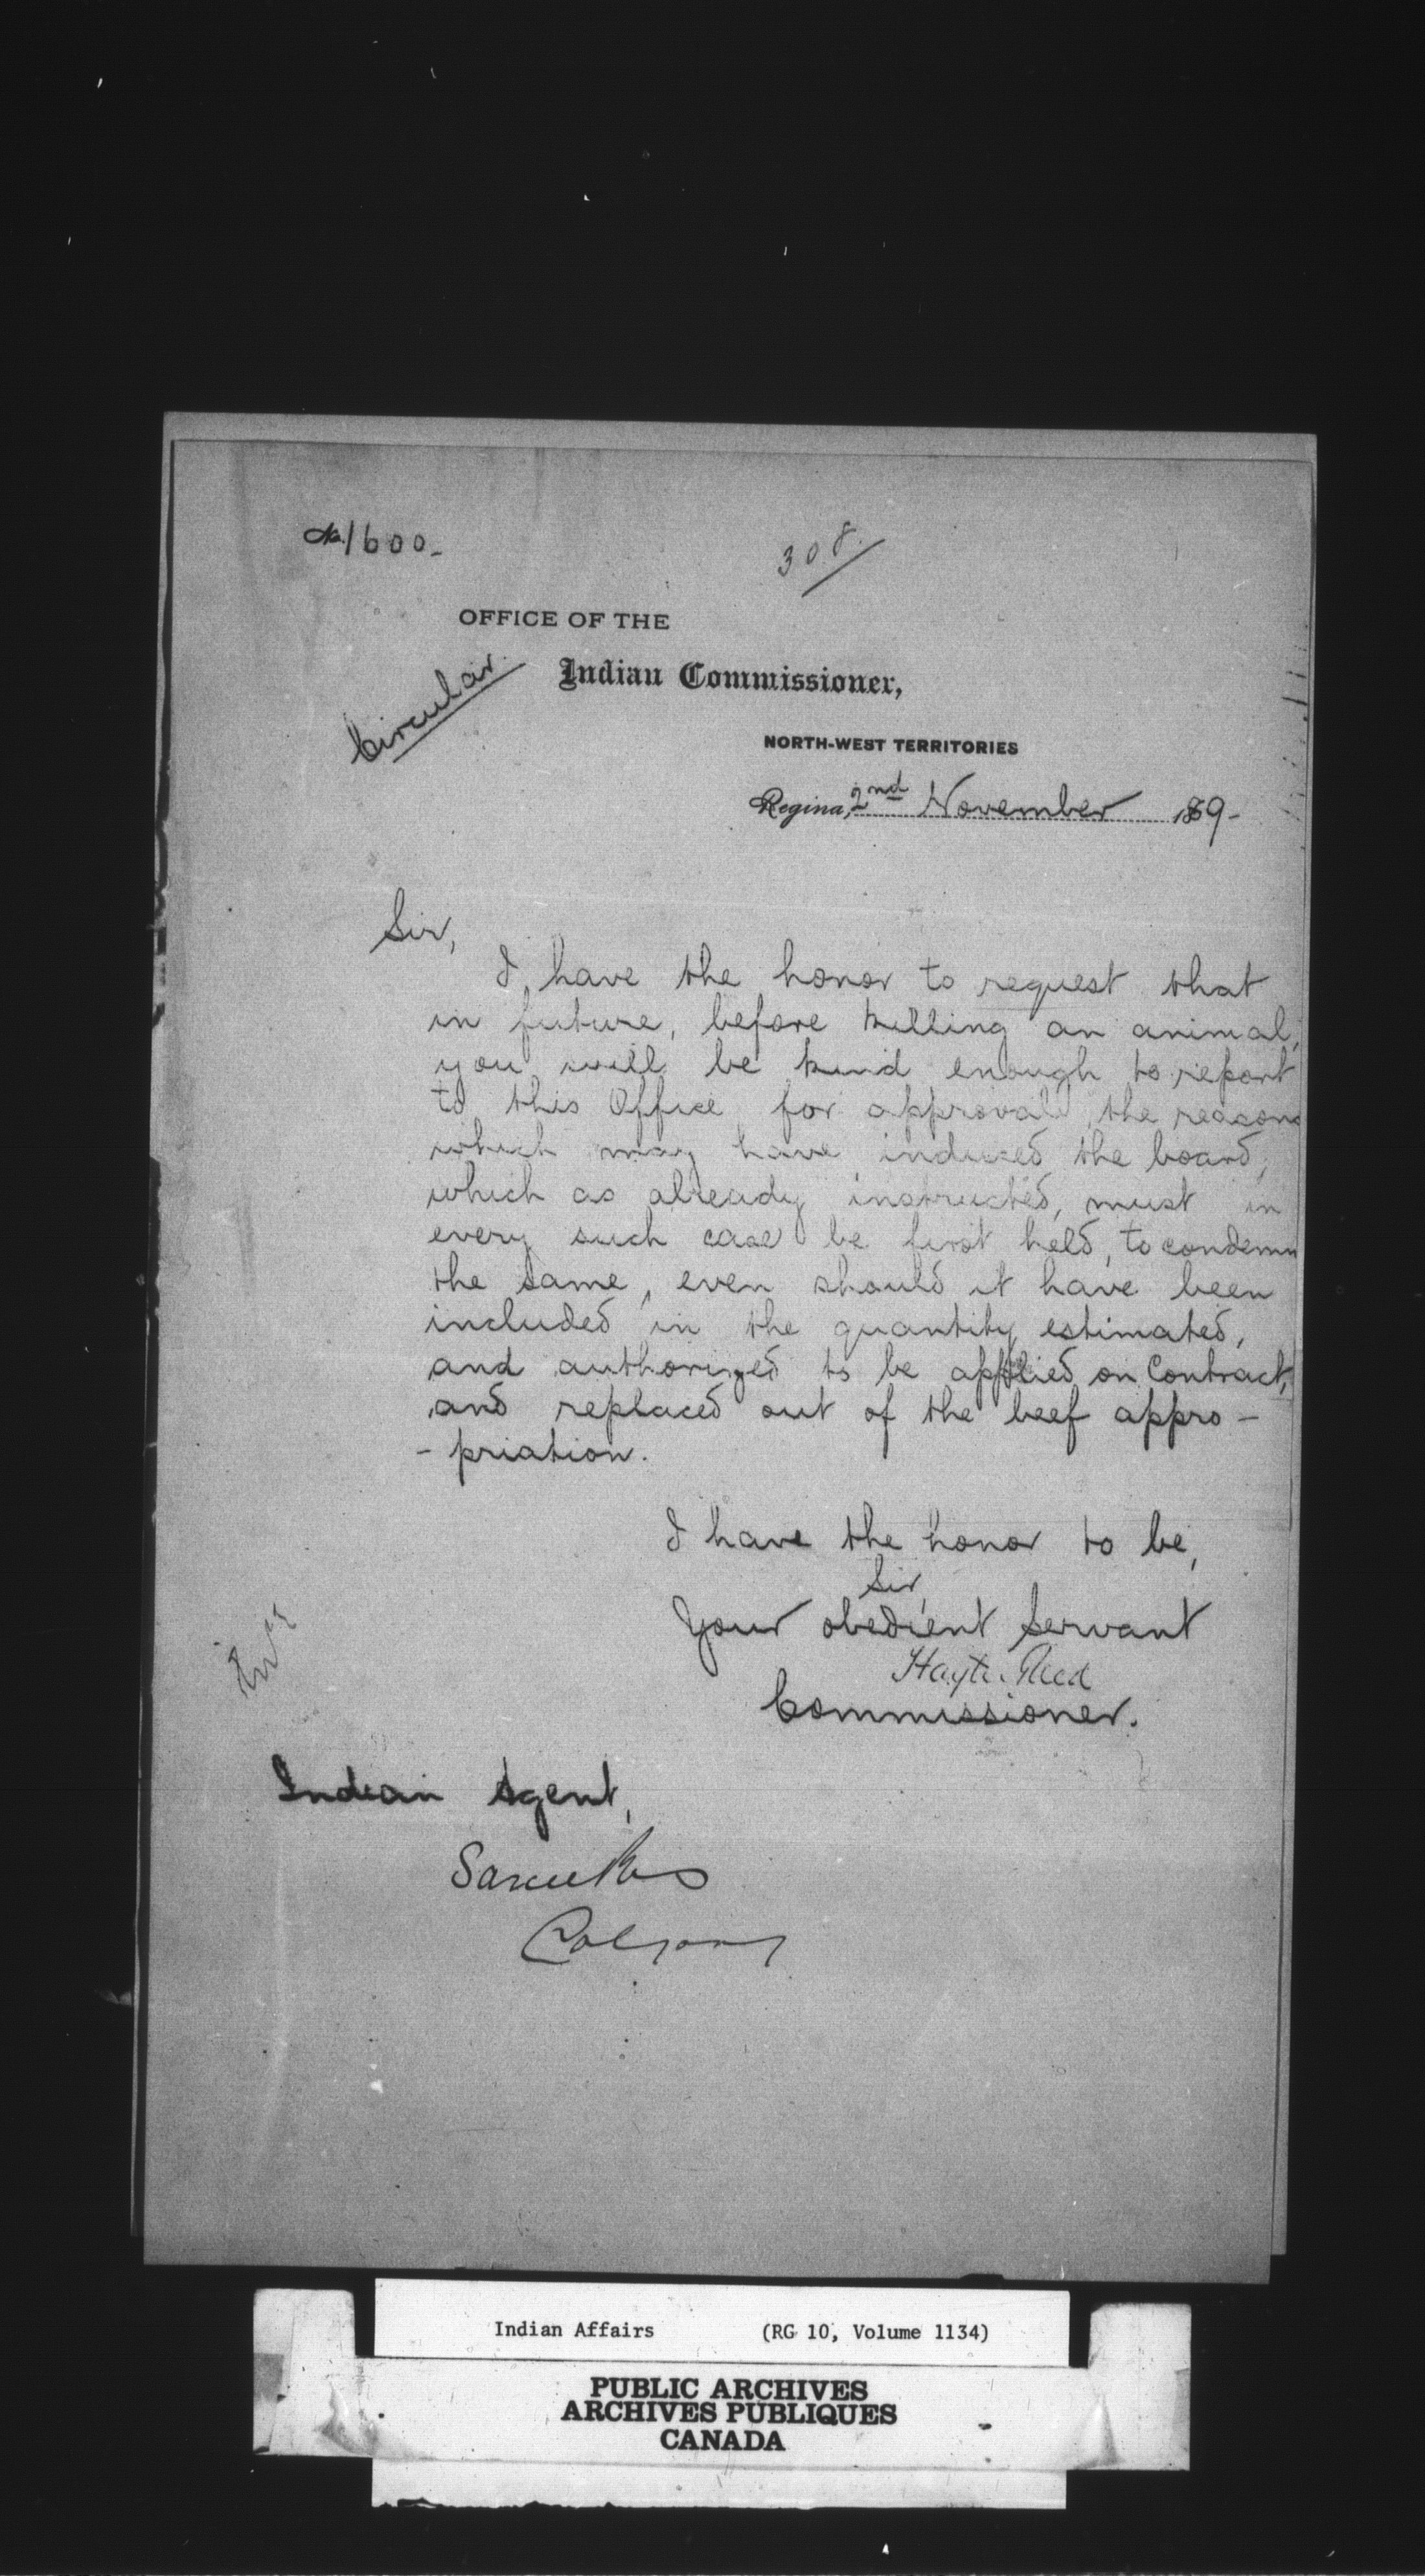 No. 1600-
308.
OFFICE OF THE
Indian Commissioner,
Circular.
NORTH-WEST TERRITORIES
Regina, 2nd November 1889-
Sir,
I have the honor to request that
in future, before killing an animal,
you will be kind enough to report
to this Office for approval, the reasons
which may have induced the board,
which as already instructed, must in
every such case be first held, to condemn
the same, even should it have been
included in the quantity estimated,
and authorized to be applied on Contract,
and replaced out of the beef appro-
-priation.
I have the honor to be,
Sir,
Your obedient Servant
Hayter Reed
Commissioner.
Indian Agent,
Sarcee Res
Calgary
Indian Affairs (RG 10, Volume 1134)
PUBLIC ARCHIVES
ARCHIVES PUBLIQUES
CANADA